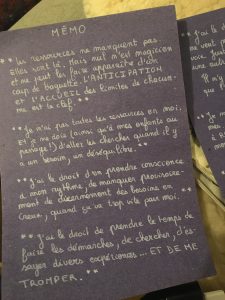 MÉMO
** Les ressources ne manquent pas
elles sont là. Mais nul n'est magicien
et ne peut les faire apparaître d'un
coup de baguette. L'ANTICIPATION
et L'ACCUEIL des limites de chacun-
me est la clef. **
** Je n'ai pas toutes les ressources en moi,
ET je me dois (ainsi qu'à mes enfants au
passage!) d'aller les chercher quand il y
a un besoin, un déséquilibre. **
** J'ai le droit d'en prendre conscience
à mon rythme, de manquer provisoire-
ment de discernement des besoins en
creux, quand ça va trop vite pour moi. **
** J'ai le droit de prendre le temps de
faire les démarches, de chercher, d'es-
sayer divers expériences... ET DE ME
TROMPER. **
** J'ai le d
me
pouvoir
Il n'y